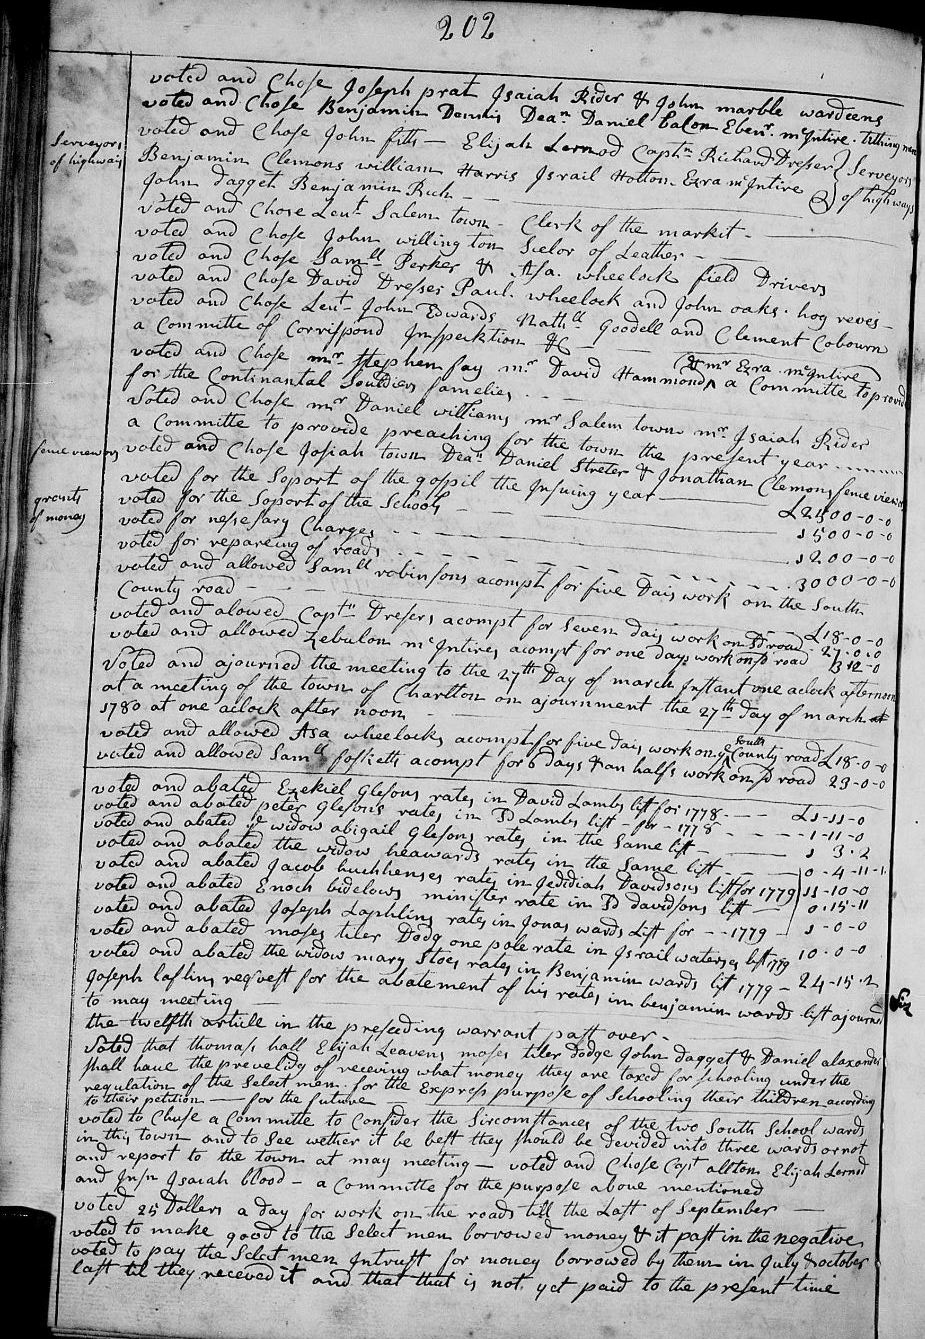 202
voted and Chose Joseph prat Isaiah Rider & John marble wardeens
voted and Chose Benjamin Dennis Deaⁿ Daniel Ebenʳ. mᶜIntire. tithing men
Serveyors of highways
voted and Chose John fitts — Elijah Lernod Captⁿ Richard Dresser } Serveyors
Benjamin Clemons william Harris Israil Hotton Ezra mᶜIntire } of high ways
John dagget Benjamin Rich
voted and Chose Leuᵗ Salem town Clerk of the market
voted and Chose John willington Sielor of Leather
voted and Chose Samˡˡ Perker & Asa. wheelock field Drivers
voted and Chose David Dresser Paul. wheelock and John oaks. hog reves
voted and Chose Leuᵗ John Edwards Nathˡˡ Goodell and Clement Cobourn
a Committe of Corrispond Inspecktion &C
voted and Chose mʳ Stephen fay mʳ David Hammond & mʳ Ezra mᶜIntire a Committe to provid
for the Continantal Souldiers famelies
Voted and Chose mʳ Daniel williams mʳ Salem town mʳ Isaiah Rider
a Committe to provide preaching for the town the present year
fence viewors
voted and Chose Josiah town Deaⁿ Daniel Streter & Jonathan Clemons fence viewors
grants of money
voted for the Soport of the gospil the Insuing year £2500-0-0
voted for the Soport of the Schools 1500-0-0
voted for nessesary Charges 1200-0-0
voted for repareing of roads 3000-0-0
voted and allowed Samˡˡ robinsons acompt for five Dais work on the South
County road £18-0-0
voted and alowed Captⁿ Dresers acompt for Seven dais work on Sᵈ road 27-0-0
voted and allowed Zebulon mᶜIntires acompt for one days work on sᵈ road 3 12-0
Voted and ajourned the meeting to the 27ᵗʰ Day of march Instant one aclock afternoon
at a meeting of the town of Charlton on ajournment the 27ᵗʰ day of march at
1780 at one aclock after noon
voted and allowed Asa wheelocks acompt for five dais work on yᵉ South County road £18-0-0
voted and allowed Samˡˡ fosketts acompt for 6 days & an halfs work on sᵈ road 23-0-0
voted and abated Ezekiel Glesons rates in David Lambs list for 1778 £1-11-0
voted and abated peter Glesons rates in Sᵈ Lambs list for 1778 1-11-0
voted and abated yᵉ widow abigail Glesons rates in the Same list 1 3-2
voted and abated the widow heawards rates in the Same list 0-4-11-1
voted and abated Jacob rates in Jedidiah Davidsons list for 1779 11-10-0
voted and abated Enoch bidelows minister rate in Sᵈ davidsons list 0-15-11
voted and abated Joseph Laphlins rates in Jonas wards List for 1779 1-0-0
voted and abated moses tiler Dodg one pole rate in Israil waterses list 1779 10-0-0
voted and abated the widow mary Stoes rates in Benjamin wards list 1779 24-15-2
Joseph laflins request for the abatement of his rates in benjamin wards list ajournd
to may meeting
the twelfth article in the preseeding warrant past over
Voted that thomas hall Elijah Leavens moses tiler dodge John dagget & Daniel alaxander
Shall have the prevelidg of receiving what money they are taxed for schooling under the
regulation of the Select men for the Express purpose of Schooling their Children according
to their petition — for the future
voted to Chuse a Committe to Consider the Sircomstances of the two South School wards
in this town and to See wether it be best they should be devided into three wards or not
and report to the town at may meeting — voted and Chose Capᵗ allton Elijah Lernod
and Insⁿ Isaiah blood — a Committe for the purpose above mentioned
voted 25 Dollers a day for work on the roads till the Last of September
voted to make good to the Select men borrowed money & it past in the negative
voted to pay the Select men Intrust for money borrowed by them in July & october
last til they receved it and that that is not yet paid to the present time